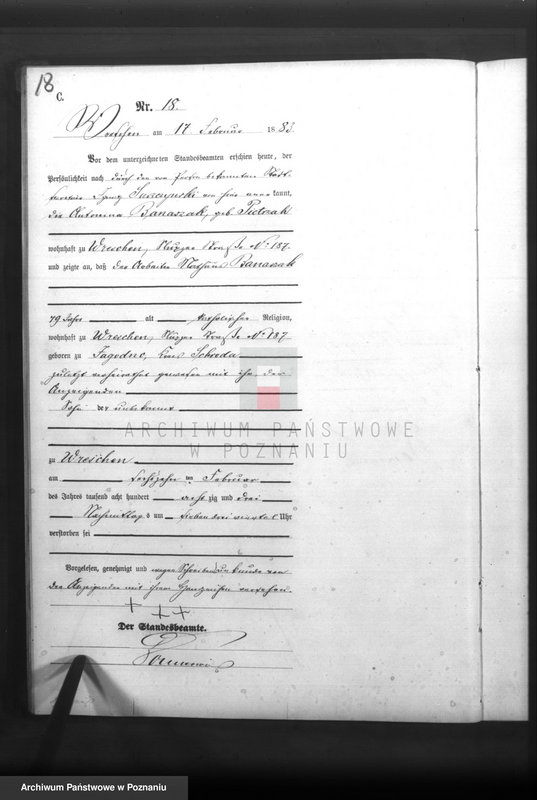 18
C.
Nr. 18.
Wreschen am 17 Februar 1883.
Vor dem unterzeichneten Standesbeamten erschien heute, der
Persönlichkeit nach durch den von Person bekannten Stadt
Surczynski von hier anerkannt,
die Antonina Banaszak, geb. Pietrzak
wohnhaft zu Wreschen, Straße No 187.
und zeigte an, daß der Arbeiter Banaszak
79 Jahr alt katholischer Religion,
wohnhaft zu Wreschen, Straße No 187
geboren zu Jagodno, Kreis Schroda
zuletzt verheirathet gewesen mit ihr der
Anzeigenden
Sohn der unbekannt
ARCHIWUM PAŃSTWOWE
W POZNANIU
zu Wreschen
am sechszehn ten Februar
des Jahres tausend acht hundert acht zig und drei
Nachmittags um sieben drei viertel Uhr
verstorben sei
Vorgelesen, genehmigt und wegen Schreibensunkunde von
der Anzeigenden mit ihrem Handzeichen versehen.
+ + +
Der Standesbeamte.
Archiwum Państwowe w Poznaniu